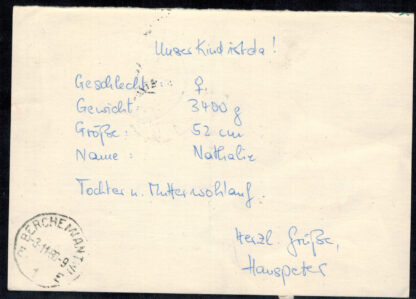 Unser Kind ist da!
Geschlecht: ♀
Gewicht: 3400 g
Größe: 52 cm
Name: Nathalie
Tochter u. Mutter wohlauf.
Herzl. Grüße,
Hanspeter
BERCHEM (ANT